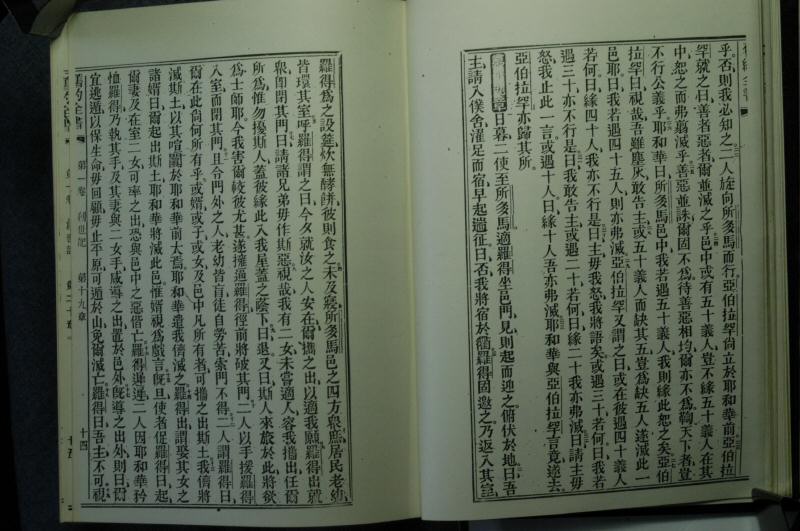 乎否則我必知之二人旋向所多馬而行亞伯拉罕尚立於耶和華前亞伯拉
罕就之曰善者惡者爾並滅之乎邑中或有五十義人豈不緣五十義人在其
中恕之而弗翦滅乎善惡並誅爾固不為待善惡相均爾亦不為鞫天下者豈
不行公義乎耶和華曰所多馬邑中我若遇五十義人我則緣此恕之矣亞伯
拉罕曰視哉吾雖塵灰敢告主或五十義人而缺其五豈為缺五人遂滅此一
邑耶曰我若遇四十五人則亦弗滅亞伯拉罕又謂之曰或在彼遇四十義人
若何曰緣四十人我亦不行是曰主毋我怒我將語矣或遇三十若何曰我若
遇三十亦不行是曰我敢告主或遇二十若何曰緣二十我亦弗滅曰請主毋
怒我止此一言或遇十人曰緣十人吾亦弗滅耶和華與亞伯拉罕言竟遂去
亞伯拉罕亦歸其所
日暮二使至所多馬適羅得坐邑門見則起而迎之俯伏於地曰吾
主請入僕舍濯足而宿早起遄征曰否我將宿於衢羅得固邀之乃返入其室
羅得為之設筵炊無酵餅彼則食之未及寢所多馬邑之四方眾庶居民老幼
皆環其室呼羅得謂之曰今夕就汝之人安在爾攜之出以適我願羅得出就
眾即閉其門曰請諸兄弟毋作斯惡視哉我有二女未嘗適人容我攜出任爾
所為惟勿擾斯人蓋彼緣此入我屋蓋之蔭下曰退又曰斯人來旅於此將欲
為士師耶今我害爾較彼尤甚遂擁逼羅得徑前將破其門二人以手援羅得
入室而閉其門且令門外之人老幼皆盲徒自勞苦索門不得二人謂羅得曰
爾在此尚何所有乎或婿或子或女及邑中凡所有者可攜之出斯土我儕將
滅斯土以其喧闐於耶和華前大焉耶和華遣我儕滅之羅得出謂娶其女之
諸婿曰爾起出斯土耶和華將滅此邑惟婿視為戲言既旦使者促羅得曰起
爾妻及在室二女可率之出恐與邑中之惡偕亡羅得遲遲二人因耶和華矜
恤羅得乃執其手及其妻與二女手咸導之出置於邑外既導之出外則曰爾
宜逃遁以保生命毋回顧毋止平原可遁於山免爾滅亡羅得曰吾主不可視
舊約全書 第一卷 創世記 第十九章 十四